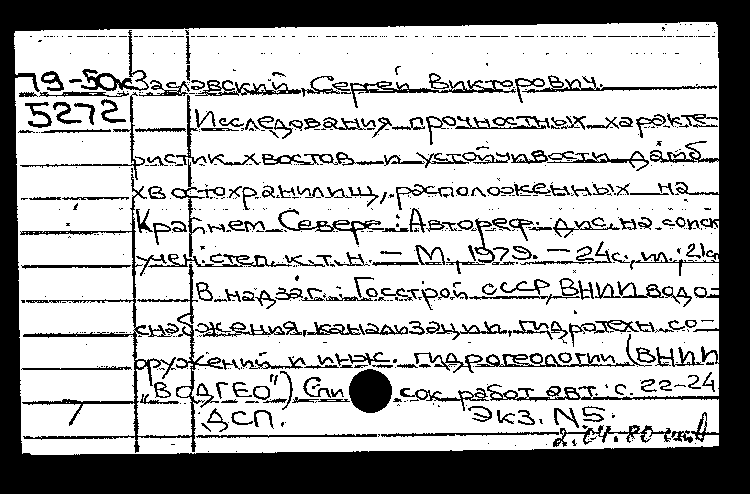 79-50к Заславский, Сергей Викторович.
5272 Исследования прочностных характе-
ристик хвостов и устойчивости дамб
хвостохранилищ, расположенных на
Крайнем Севере : Автореф. дис. на соиск
учен. степ. к. т. н. — М., 1979. — 24с., ил.; 21см
В надзаг.: Госстрой СССР, ВНИИ водо-
снабжения, канализации, гидротехн. со-
оружений и инж. гидрогеологии (ВНИИ
„ВОДГЕО"). Спи сок работ авт.: с. 22-24
7 ДСП. Экз. N5.
2.04.80